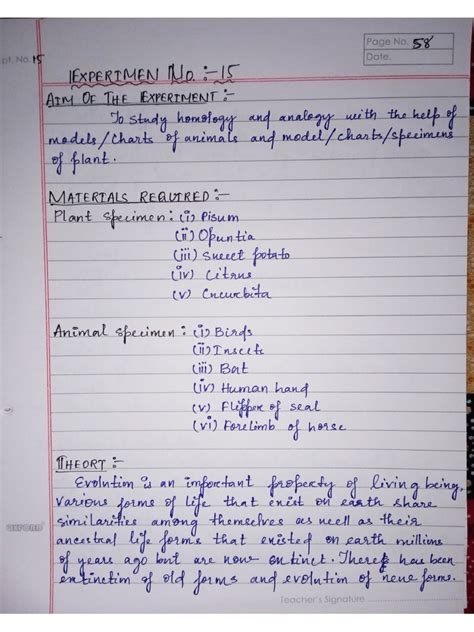 Page No. 58
Date.
pt. No. 15
EXPERIMEN NO. :- 15
AIM OF THE EXPERIMENT :-
To study homology and analogy with the help of
models/charts of animals and model/charts/specimens
of plant.
MATERIALS REQUIRED :-
Plant specimen : (i) Pisum
(ii) Opuntia
(iii) Sweet potato
(iv) Citrus
(v) Cucurbita
Animal specimen : (i) Birds
(ii) Insects
(iii) Bat
(iv) Human hand
(v) Flipper of seal
(vi) Forelimb of horse
THEORY :-
Evolution is an important property of living being,
various forms of life that exist on earth share
similarities among themselves as well as their
ancestral life forms that existed on earth millions
of years ago but are now extinct. There has been
extinction of old forms and evolution of new forms.
Teacher's Signature